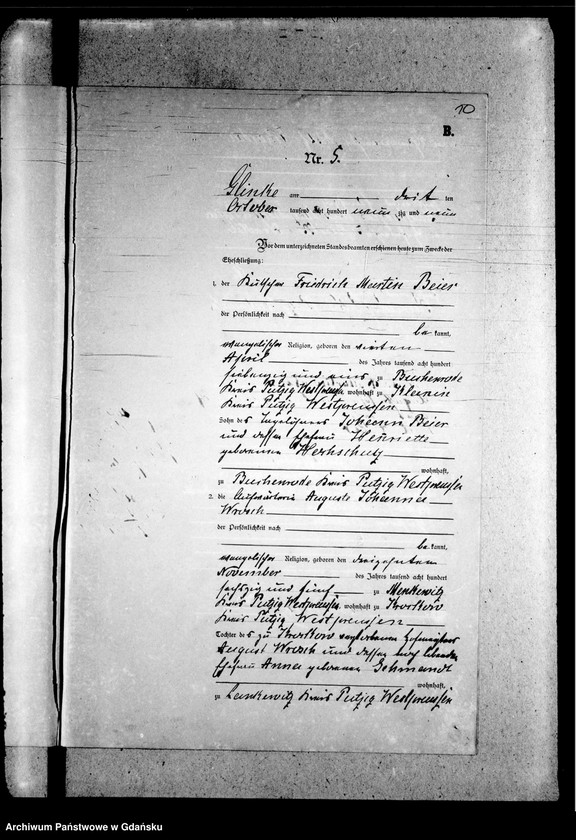 10
B.
Nr. 5.
Glinke am drit ten
October tausend acht hundert neun zig und neun
Vor dem unterzeichneten Standesbeamten erschienen heute zum Zwecke der
Eheschließung:
1. der Kutscher Friedrich Martin Beier
der Persönlichkeit nach
be kannt,
evangelischer Religion, geboren den vierten
April des Jahres tausend acht hundert
siebenzig und eins zu Buchenrode
Kreis Putzig Westpreussen wohnhaft zu
Kreis Putzig Westpreussen
Sohn des Johann Beier
und dessen Ehefrau Henriette
geborenen
wohnhaft,
zu Buchenrode Kreis Putzig Westpreussen
2. die Auguste Johanna
der Persönlichkeit nach
be kannt,
evangelischer Religion, geboren den dreizehnten
November des Jahres tausend acht hundert
sechszig und fünf zu Menkewitz
Kreis Putzig Westpreussen, wohnhaft zu Krockow
Kreis Putzig Westpreussen
Tochter des zu Krockow verstorbenen
August und dessen noch lebenden
Ehefrau Anna geborenen Schmandt
wohnhaft,
zu Kreis Putzig Westpreussen
Archiwum Państwowe w Gdańsku